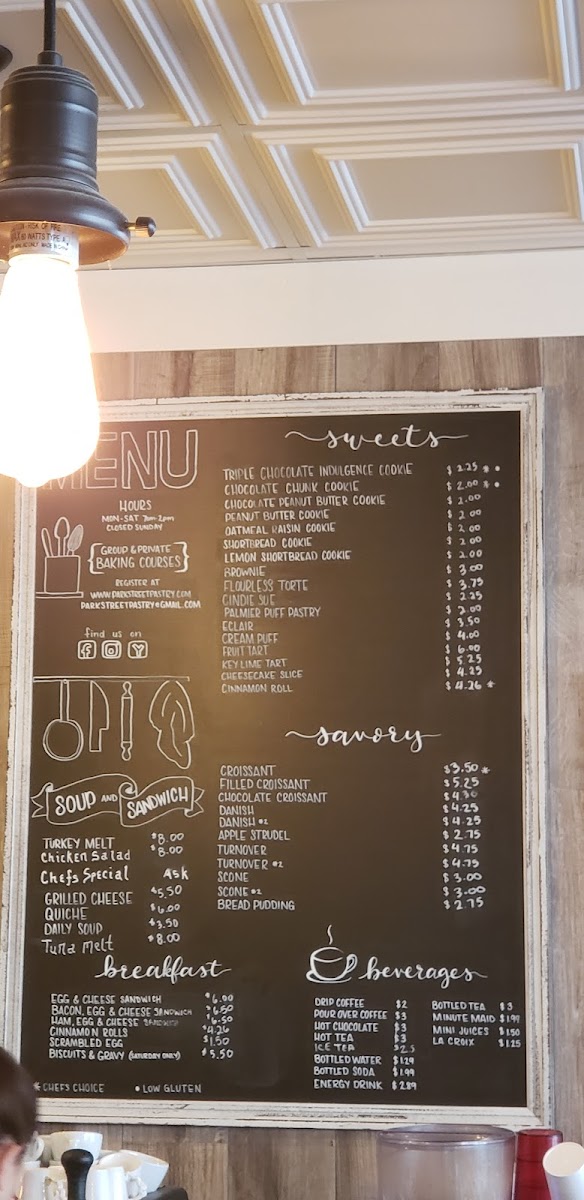 RISK OF FIRE
WATTS TYPE A
MENU
HOURS
MON-SAT 7am-2pm
CLOSED SUNDAY
GROUP & PRIVATE
BAKING COURSES
REGISTER AT
WWW.PARKSTREETPASTRY.COM
PARKSTREETPASTRY@GMAIL.COM
find us on
SOUP AND SANDWICH
TURKEY MELT $8.00
Chicken Salad $8.00
Chefs Special Ask
GRILLED CHEESE $5.50
QUICHE $6.00
DAILY SOUP $3.50
Tuna melt $8.00
breakfast
EGG & CHEESE SANDWICH $6.00
BACON, EGG & CHEESE SANDWICH $6.50
HAM, EGG & CHEESE SANDWICH $6.50
CINNAMON ROLLS $4.26
SCRAMBLED EGG $1.50
BISCUITS & GRAVY (SATURDAY ONLY) $5.50
* CHEFS CHOICE • LOW GLUTEN
sweets
TRIPLE CHOCOLATE INDULGENCE COOKIE $2.25 * •
CHOCOLATE CHUNK COOKIE $2.00 * •
CHOCOLATE PEANUT BUTTER COOKIE $2.00
PEANUT BUTTER COOKIE $2.00
OATMEAL RAISIN COOKIE $2.00
SHORTBREAD COOKIE $2.00
LEMON SHORTBREAD COOKIE $2.00
BROWNIE $3.00
FLOURLESS TORTE $3.75
CINDIE SUE $2.25
PALMIER PUFF PASTRY $2.00
ECLAIR $3.50
CREAM PUFF $4.00
FRUIT TART $6.00
KEY LIME TART $5.25
CHEESECAKE SLICE $4.25
CINNAMON ROLL $4.26 *
savory
CROISSANT $3.50 *
FILLED CROISSANT $5.25
CHOCOLATE CROISSANT $4.30
DANISH $4.25
DANISH #2 $4.25
APPLE STRUDEL $2.75
TURNOVER $4.75
TURNOVER #2 $4.75
SCONE $3.00
SCONE #2 $3.00
BREAD PUDDING $2.75
beverages
DRIP COFFEE $2
POUR OVER COFFEE $3
HOT CHOCOLATE $3
HOT TEA $3
ICE TEA $2.5
BOTTLED WATER $1.29
BOTTLED SODA $1.99
ENERGY DRINK $2.89
BOTTLED TEA $3
MINUTE MAID $1.99
MINI JUICES $1.50
LA CROIX $1.25